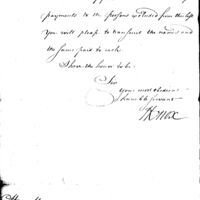 payments to the persons excluded from the list
You will please to transmit the names and
the sums paid to each
I have the honor to be
Sir
your most obedient
humble servant
HKnox